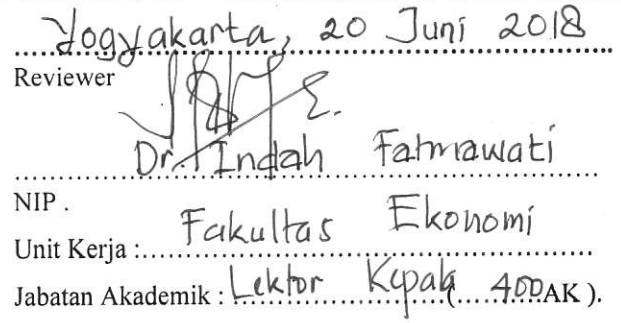 Yogyakarta, 20 Juni 2018
Reviewer
Dr. Indah Fatmawati
NIP .
Unit Kerja : Fakultas Ekonomi
Jabatan Akademik : Lektor Kepala (....400AK ).